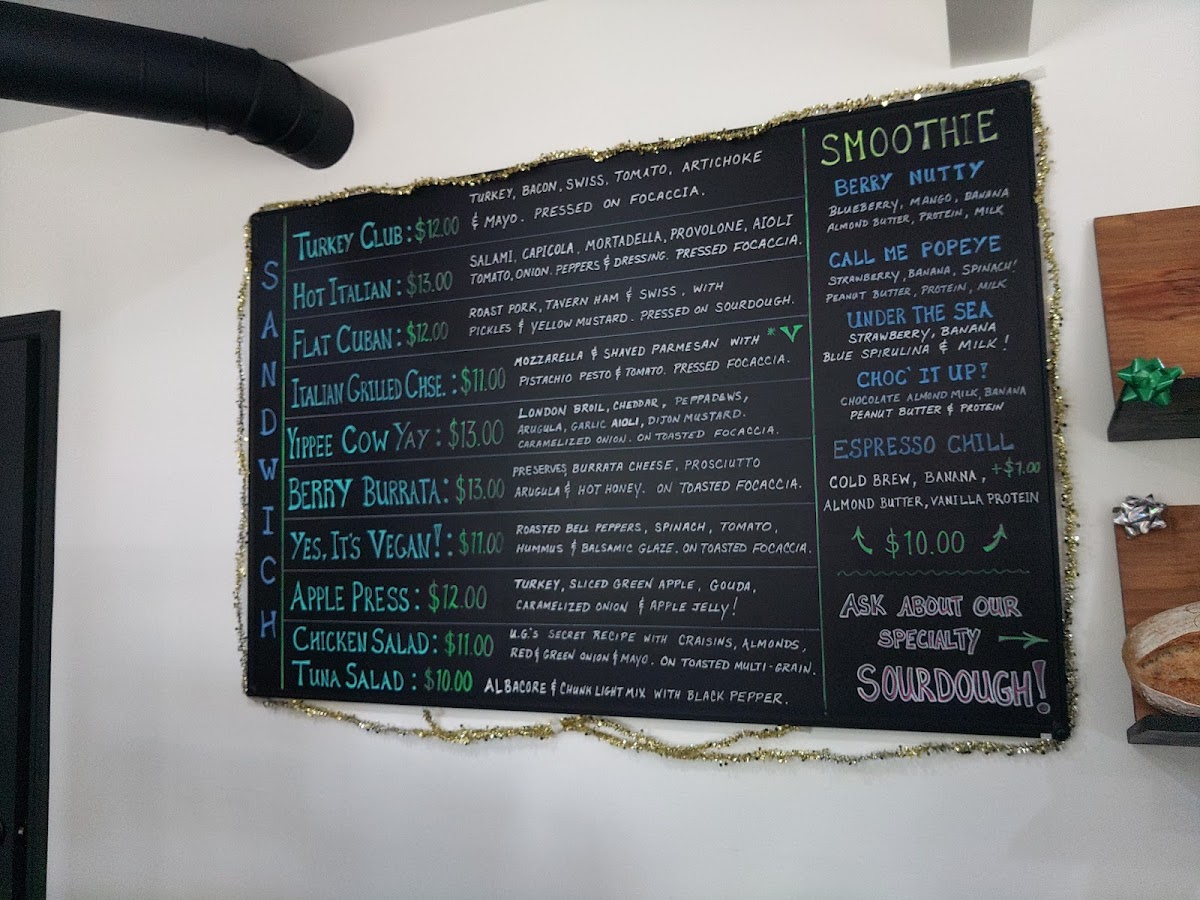 SANDWICH
TURKEY CLUB: $12.00
TURKEY, BACON, SWISS, TOMATO, ARTICHOKE
& MAYO. PRESSED ON FOCACCIA.
HOT ITALIAN: $13.00
SALAMI, CAPICOLA, MORTADELLA, PROVOLONE, AIOLI
TOMATO, ONION. PEPPERS & DRESSING. PRESSED FOCACCIA.
FLAT CUBAN: $12.00
ROAST PORK, TAVERN HAM & SWISS, WITH
PICKLES & YELLOW MUSTARD. PRESSED ON SOURDOUGH.
ITALIAN GRILLED CHSE.: $11.00
MOZZARELLA & SHAVED PARMESAN WITH *V
PISTACHIO PESTO & TOMATO. PRESSED FOCACCIA.
YIPPEE COW YAY: $13.00
LONDON BROIL, CHEDDAR, PEPPADEWS,
ARUGULA, GARLIC AIOLI, DIJON MUSTARD.
CARAMELIZED ONION. ON TOASTED FOCACCIA.
BERRY BURRATA: $13.00
PRESERVES, BURRATA CHEESE, PROSCIUTTO
ARUGULA & HOT HONEY. ON TOASTED FOCACCIA.
YES, IT'S VEGAN!: $11.00
ROASTED BELL PEPPERS, SPINACH, TOMATO,
HUMMUS & BALSAMIC GLAZE. ON TOASTED FOCACCIA.
APPLE PRESS: $12.00
TURKEY, SLICED GREEN APPLE, GOUDA,
CARAMELIZED ONION & APPLE JELLY!
CHICKEN SALAD: $11.00
U.G.'S SECRET RECIPE WITH CRAISINS, ALMONDS,
RED & GREEN ONION & MAYO. ON TOASTED MULTI-GRAIN.
TUNA SALAD: $10.00
ALBACORE & CHUNK LIGHT MIX WITH BLACK PEPPER.
SMOOTHIE
BERRY NUTTY
BLUEBERRY, MANGO, BANANA
ALMOND BUTTER, PROTEIN, MILK
CALL ME POPEYE
STRAWBERRY, BANANA, SPINACH!
PEANUT BUTTER, PROTEIN, MILK
UNDER THE SEA
STRAWBERRY, BANANA
BLUE SPIRULINA & MILK!
CHOC' IT UP!
CHOCOLATE ALMOND MILK, BANANA
PEANUT BUTTER & PROTEIN
ESPRESSO CHILL
COLD BREW, BANANA, +$1.00
ALMOND BUTTER, VANILLA PROTEIN
$10.00
ASK ABOUT OUR
SPECIALTY
SOURDOUGH!